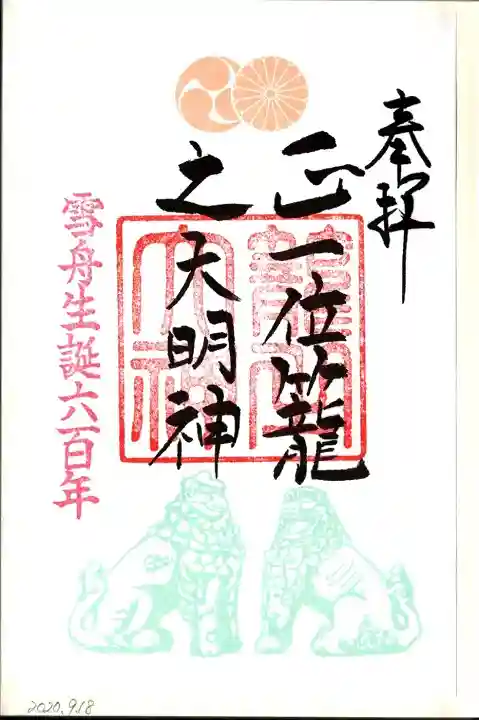 奉拝
正一位籠
之大明神
雪舟生誕六百年
2020.9.18